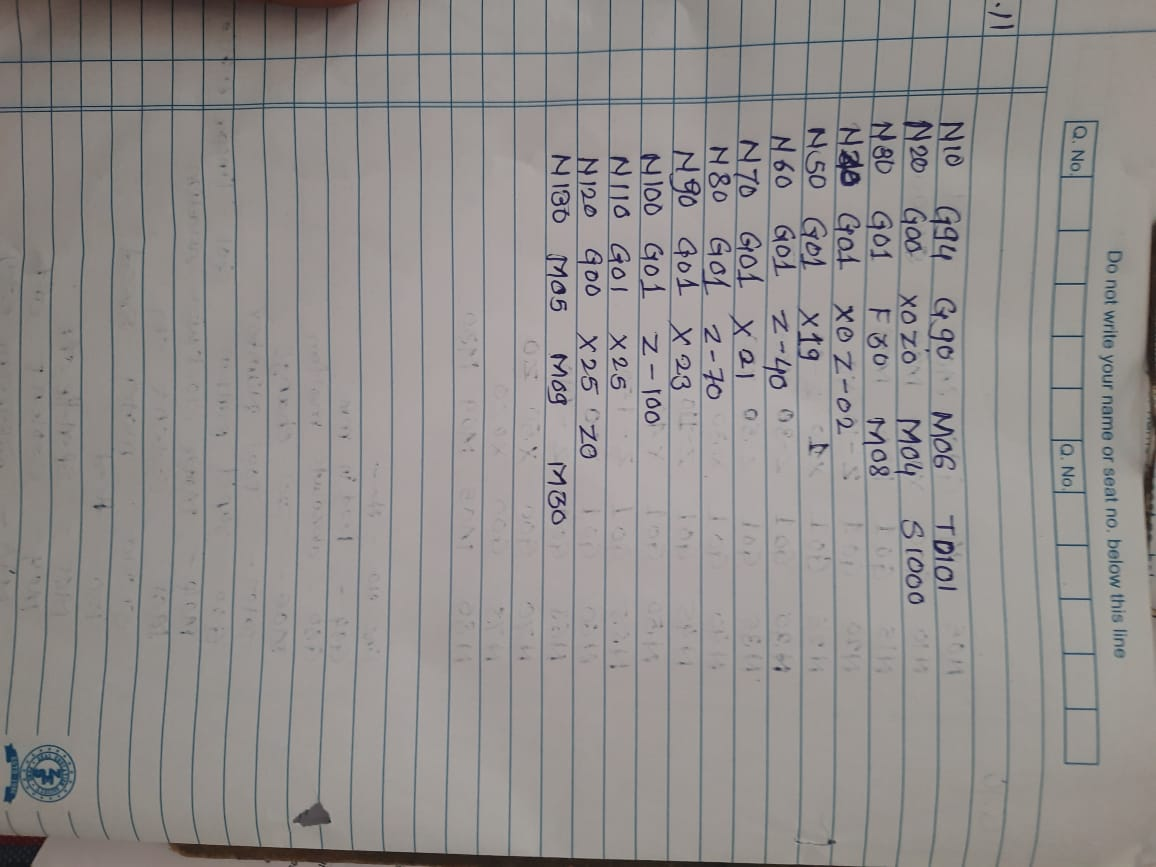 Do not write your name or seat no. below this line
Q. No. Q. No.
.11
N10 G94 G90 M06 T0101
N20 G00 X0Z0 M04 S1000
N30 G01 F30 M08
G01 X0Z-02
N50 G01 X19
N60 G01 Z-40
N70 G01 X21
N80 G01 Z-70
N90 G01 X23
N100 G01 Z-100
N110 G01 X25
N120 G00 X25 Z0
N130 M05 M09 M30